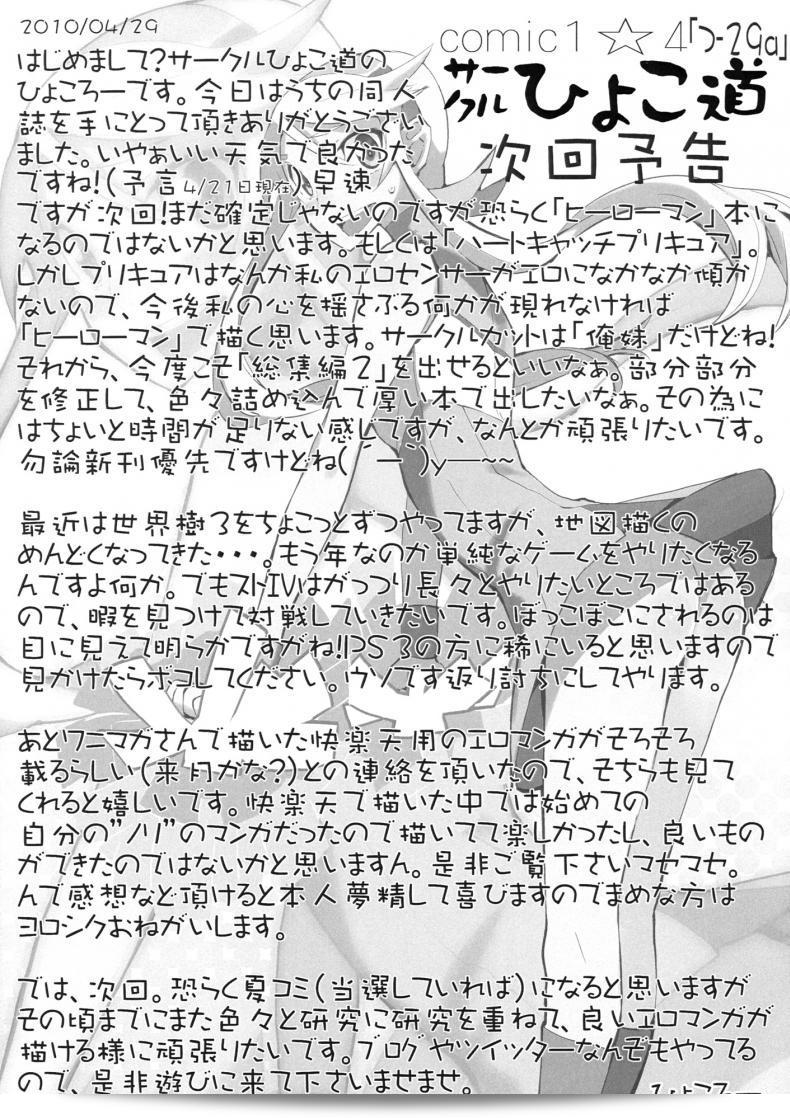 2010/04/29
comic1☆4「つ-29a」
サークルひよこ道
次回予告
はじめまして?サークルひよこ道の
ひよころーです。今日はうちの同人
誌を手にとって頂きありがとうござい
ました。いやぁいい天気で良かった
ですね!(予言4/21日現在)早速
ですが次回!まだ確定じゃないのですが恐らく「ヒーローマン」本に
なるのではないかと思います。もしくは「ハートキャッチプリキュア」。
しかしプリキュアはなんか私のエロセンサーがエロになかなか傾か
ないので、今後私の心を揺さぶる何かが現れなければ
「ヒーローマン」で描く思います。サークルカットは「俺妹」だけどね!
それから、今度こそ「総集編2」を出せるといいなぁ。部分部分
を修正して、色々詰め込んで厚い本で出したいなぁ。その為に
はちょいと時間が足りない感じですが、なんとか頑張りたいです。
勿論新刊優先ですけどね(´ー`)y━~~
最近は世界樹3をちょこっとずつやってますが、地図描くの
めんどくなってきた・・・。もう年なのか単純なゲームをやりたくなる
んですよ何か。でもストⅣはがっつり長々とやりたいところではある
ので、暇を見つけて対戦していきたいです。ぼっこぼこにされるのは
目に見えて明らかですがね!PS3の方に稀にいると思いますので
見かけたらボコしてください。ウソです返り討ちにしてやります。
あとワニマガさんで描いた快楽天用のエロマンガがそろそろ
載るらしい(来月かな?)との連絡を頂いたので、そちらも見て
くれると嬉しいです。快楽天で描いた中では始めての
自分の"ノリ"のマンガだったので描いてて楽しかったし、良いもの
ができたのではないかと思いますん。是非ご覧下さいマセマセ。
んで感想など頂けると本人夢精して喜びますのでまめな方は
ヨロシクおねがいします。
では、次回。恐らく夏コミ(当選していれば)になると思いますが
その頃までにまた色々と研究に研究を重ねて、良いエロマンガが
描ける様に頑張りたいです。ブログやツイッターなんぞもやってる
ので、是非遊びに来て下さいませませ。